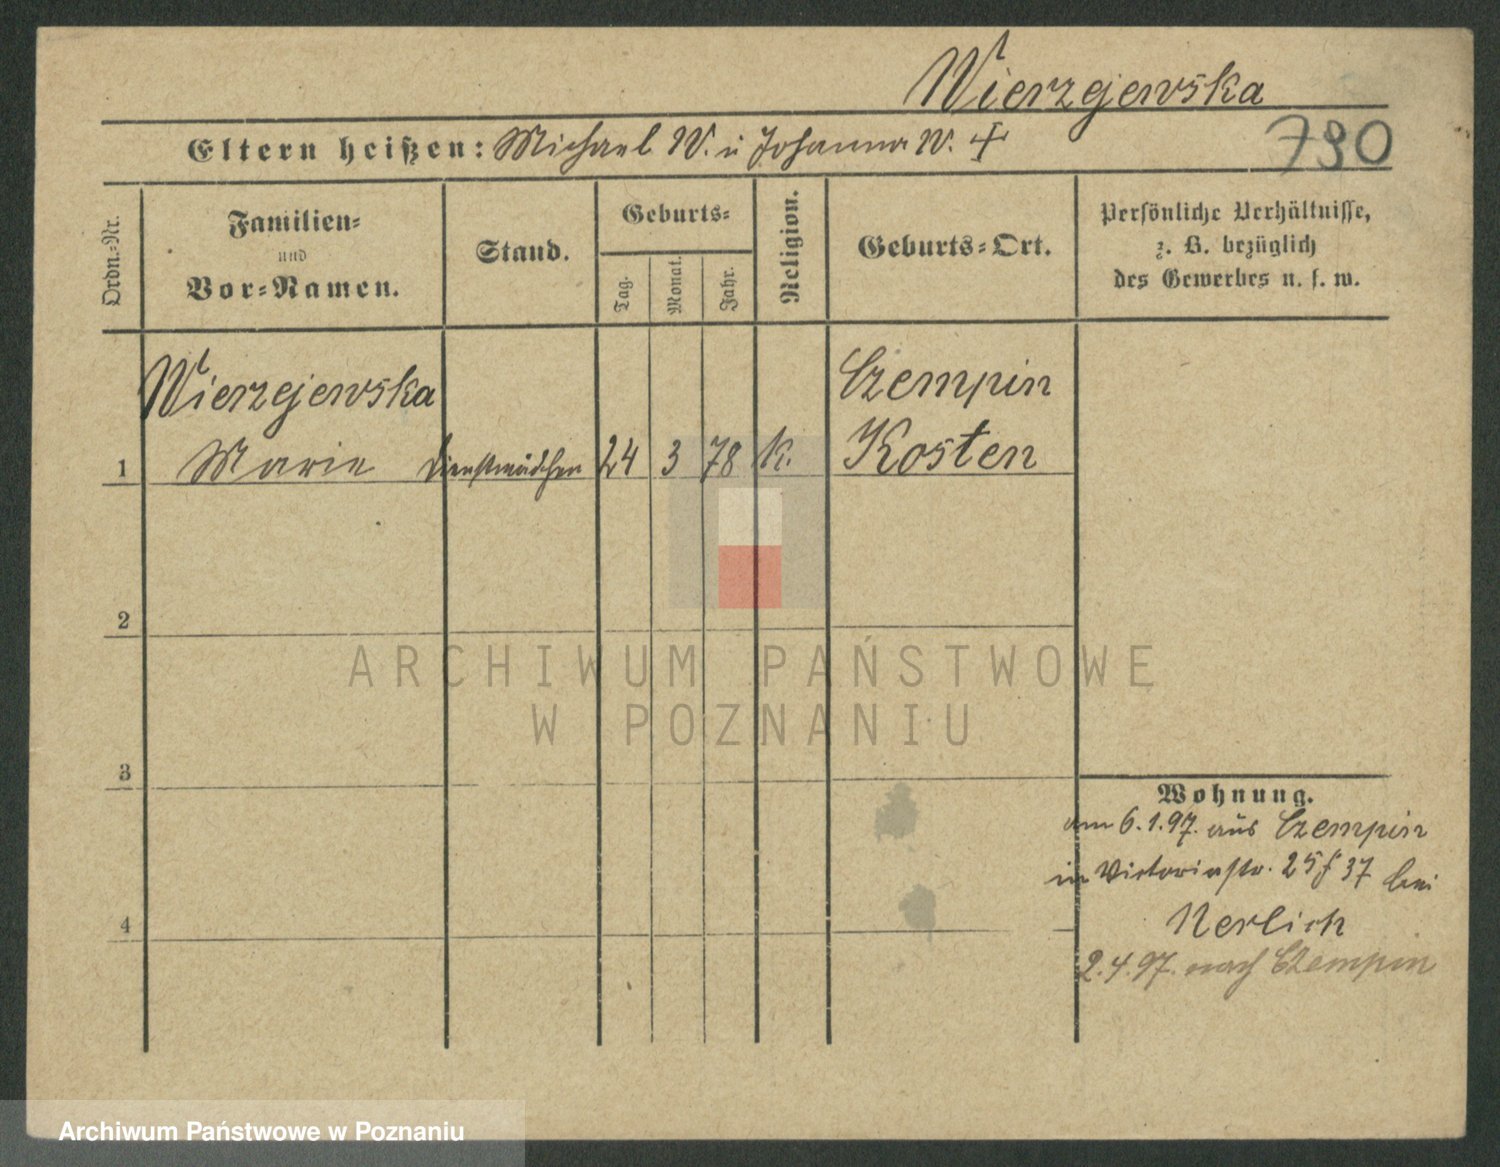 Wierzejewska
Eltern heißen: Michael W. u Johanna W. +
790
Ordn.=Nr.
Familien=
und
Vor=Namen.
Stand.
Geburts=
Tag.
Monat.
Jahr.
Religion.
Geburts=Ort.
Persönliche Verhältnisse,
z. B. bezüglich
des Gewerbes u. s. w.
Wierzejewska
Czempin
1 Marie Dienstmädchen 24 3 78 k. Kosten
2
ARCHIWUM PAŃSTWOWE
W POZNANIU
3
Wohnung.
am 6.1.97. aus Czempin
in Victoriastr. 25 37 bei
Nerlich
4
2.4.97. nach Czempin
Archiwum Państwowe w Poznaniu